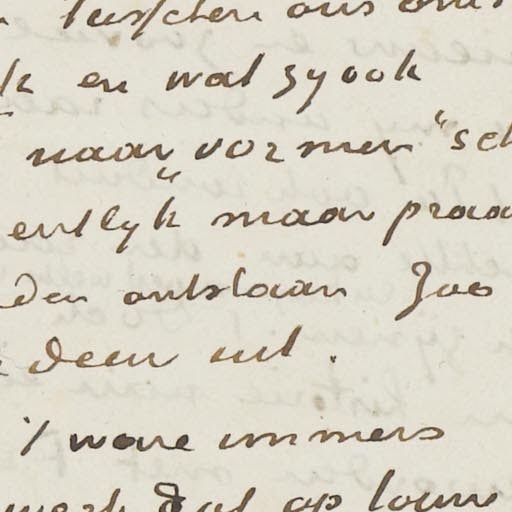 tusschen ons
k en wat gy ook
naar vormen "sch
entlyk" maar praa
den ontslaan Zoo
deen uit.
't ware immers
dat op louw